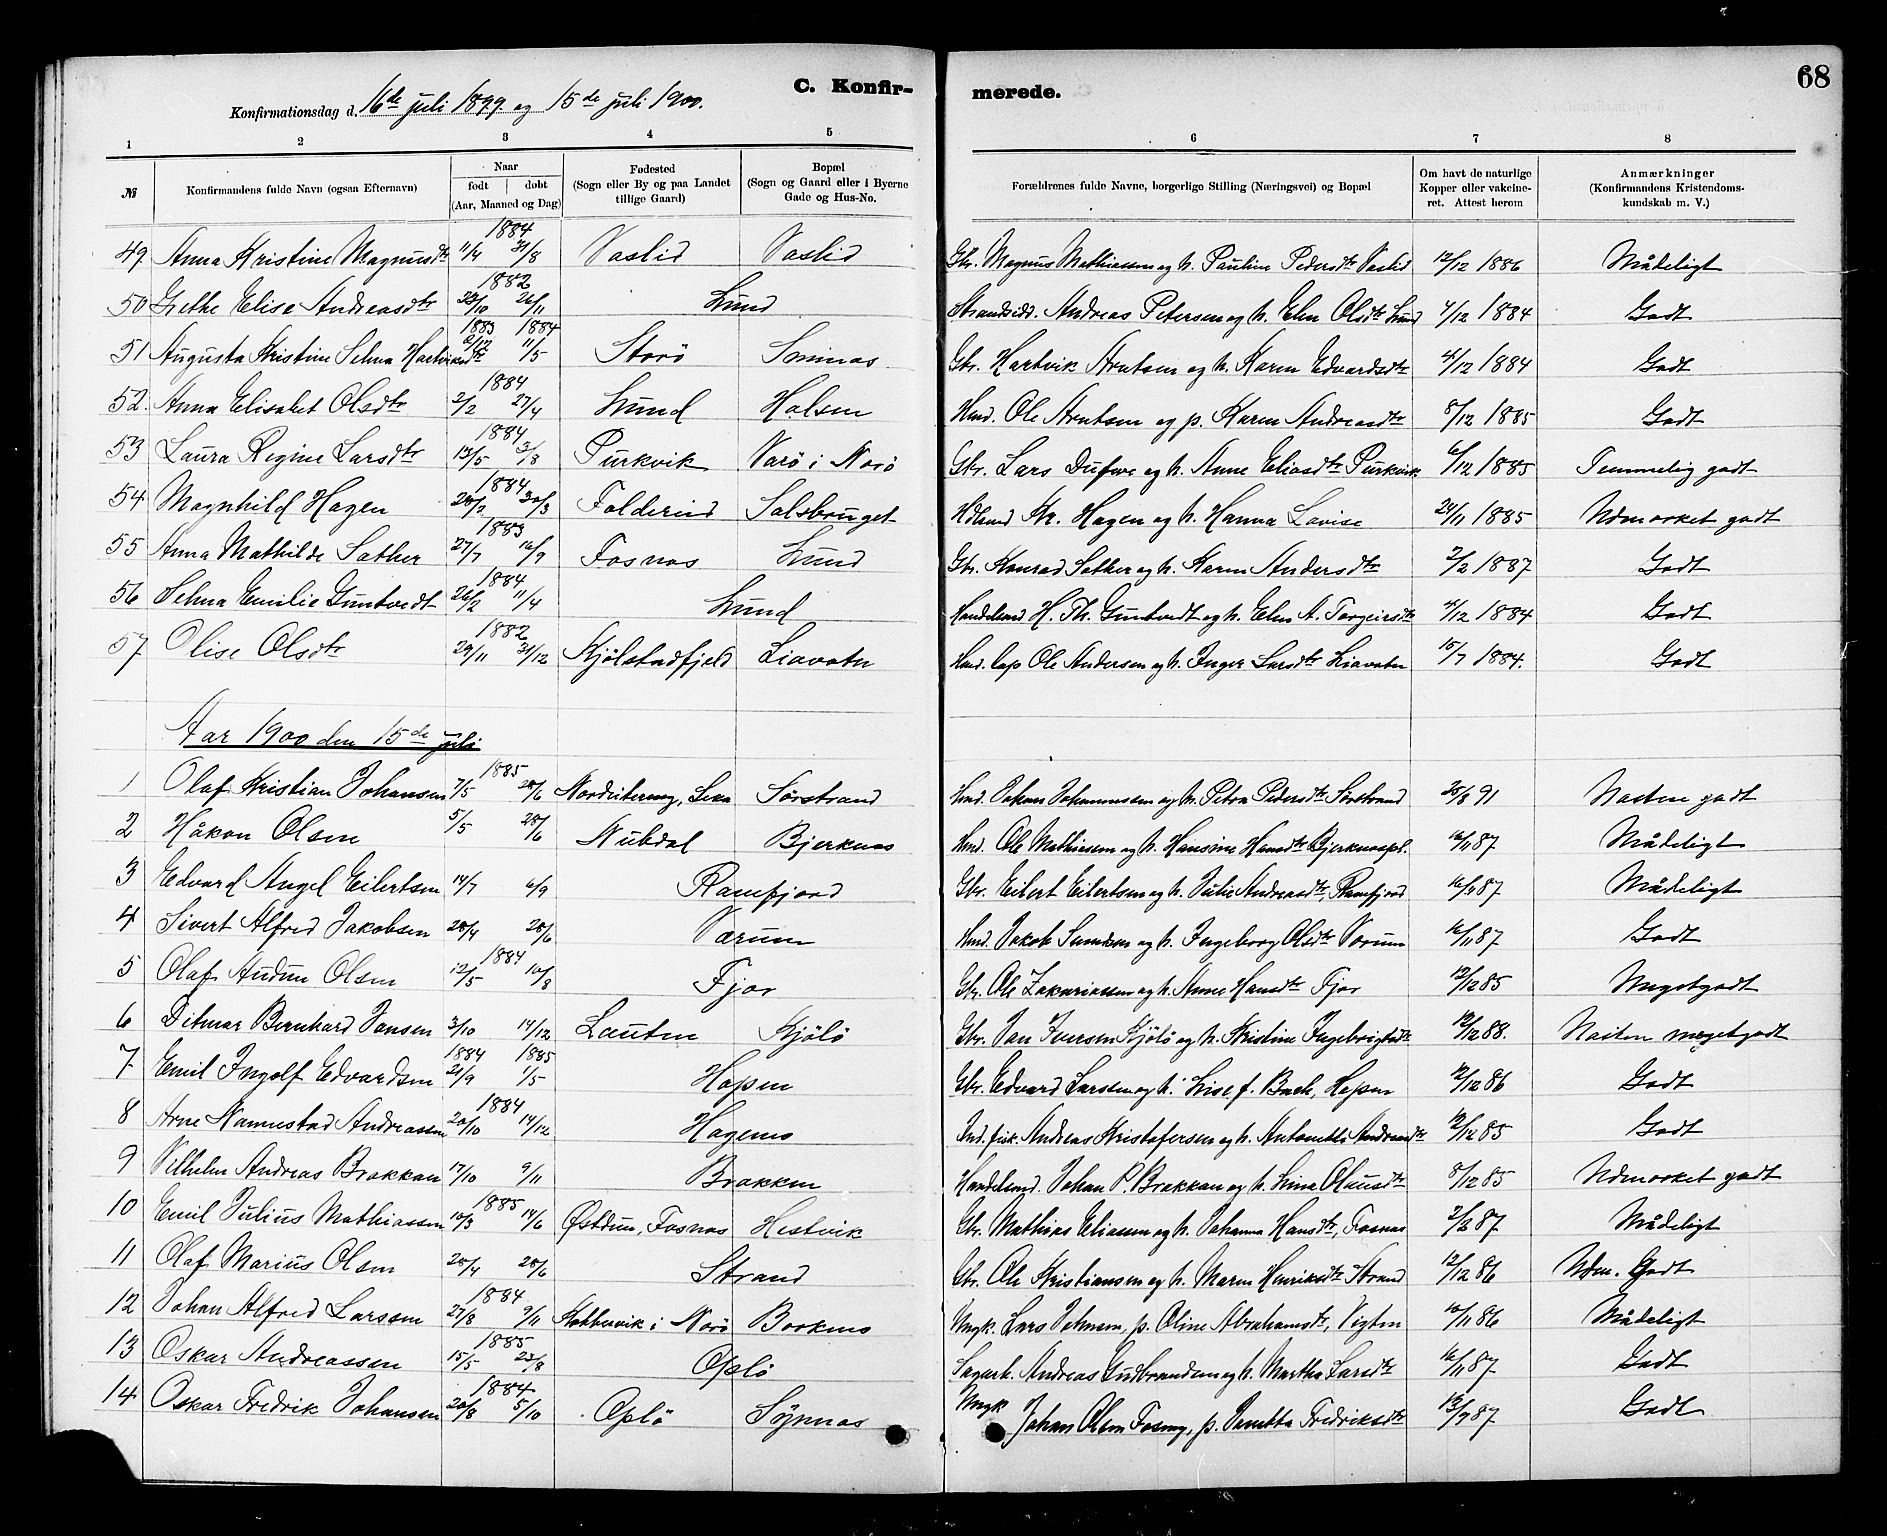 C. Konfir- merede. 68
Konfirmationsdag d. 16de juli 1899. og 15de juli 1900.
1 2 3 4 5 6 7 8
№ Konfirmandens fulde Navn (ogsaa Efternavn) Naar født døbt (Aar, Maaned og Dag) Fødested (Sogn eller By og paa Landet tillige Gaard) Bopæl (Sogn og Gaard eller i Byerne Gade og Hus-No. Forældrenes fulde Navne, borgerlige Stilling (Næringsvei) og Bopæl Om havt de naturlige Kopper eller vakcine- ret. Attest herom Anmærkninger (Konfirmandens Kristendoms- kundskab m. V.)
49 Anna Kristine Magnusdtr 1884 11/4 31/8 Vaslid Vaslid Gbr. Magnus Mathiassen og h. Pauline Pedersdtr Vaslid 12/12 1886 Mådeligt
50 Grethe Elise Andreasdtr 1882 23/10 26/11 Lund Strandsidd. Andreas Petersen og h. Elen Olsdtr Lund 4/12 1884 Godt
51 Augusta Kristine Selma Hartviksdtr 1883 2/12 1884 11/5 Storö Sminas Gbr. Hartvik Arntsen og h. Karen Edvardsdtr 4/12 1884 Godt
52. Anna Elisabet Olsdtr 1884 2/2 27/4 Lund Halsen Hmd. Ole Arntsen og p. Karen Andreasdtr 8/12 1885 Godt
53 Laura Regine Larsdtr 1884 13/5 3/8 Purkvik Varö i Narö Gbr. Lars og h. Anne Eliasdtr Purkvik. 6/12 1885 Temmelig godt
54 Magnhild Hagen 1884 20/2 30/3 Foldereid Salsbruget Kr. Hagen og h. Hanna Lovise 24/11 1885 Udmærket godt
55 Anna Mathilde Sæther 1883 27/7 16/9 Fosnæs Lund Gbr. Konrad Sæther og h. Karen Andersdtr 2/2 1887 Godt
56 Selma Emilie Guntvedt 1884 26/2 11/4 Lund Handelsmd H. Th. Guntvedt og h. Elen A. Torgeirsdtr 4/12 1884 Godt
57 Olise Olsdtr 1882 29/11 31/12 Kjölstadfjeld Liavatn Hmd. Lap Ole Andersen og h. Inger Larsdtr Liavatn 15/7 1884. Godt
Aar 1900 den 15de juli
1 Olaf Kristian Johansen 1885 7/5 28/6 Leka Sörstrand Hmd. Johan Johannessen og h. Petra Pedersdtr Sörstrand 20/8 91 Næsten godt
2 Håkon Olsen 5/5 28/6 Nubdal Bjerknes Hmd. Ole Mathiassen og h. Hansine Hansdtr Bjerknespl. 16/11 87 Mådeligt
3 Edvard Angel Eilertsen 14/7 6/9 Ramfjord Gbr. Eilert Eilertsen og h. Julie Andreasdtr, Ramfjord 16/11 87 Mådeligt
4 Sivert Alfred Jakobsen 20/4 28/6 Værum Hmd. Jakob og h. Ingeborg Olsdtr Værum 16/11 87 Godt
5 Olaf Audun Olsen 1884 12/5 10/8 Fjær Gbr. Ole Zakariassen og h. Anne Hansdtr Fjær 12/12 85 Megetgodt
6 Ditmar Bernhard Jansen 3/10 14/12 Lauten Kjölö Gbr. Jan Iversen Kjölö og h. Kristine Ingebrigtsdtr 12/12 88. Næsten megetgodt
7 Emil Ingolf Edvardsen 1884 21/9 1885 1/5 Hopen Gbr. Edvard Larssen og h. Lise f. Bach, Hopen 12/12 86 Godt
8 Arne Nannestad Andreassen 1884 20/10 14/12 Hagenes Ind. fisk. Andreas Kristofersen og h. Antonette Andreasdtr 12/12 85 Godt
9 Vilhelm Andreas Brakkan 17/10 9/11 Brakken Handelsmd. Johan P. Brakkan og h. Lina Olausdtr 8/12 85 Udmærket godt
10 Emil Julius Mathiassen 1885 10/3 14/6 Östdun, Fosnæs Hestvik Gbr. Mathias Eliassen og h. Johanna Hansdtr, Fosnæs 2/2 87 Mådeligt
11 Olaf Marius Olsen 20/4 28/6 Strand Gbr. Ole Kristiansen og h. Maren Henriksdtr Strand 12/12 86 Udm. Godt
12 Johan Alfred Larssen 1884 27/8 9/11 i Narö Borkenes Ungk. Lars Johnsen, p. Oline Abrahamsdtr, Vigten 10/11 86 Mådeligt
13 Oskar Andreassen 1885 15/5 23/8 Oplö Sagarb. Andreas Gudbrandsen og h. Martha Larsdtr 16/11 87 Godt
14 Oskar Fredrik Johansen 1884 20/8 5/10 Oplö Synnæs Ungk Johan Olsen Fosnes, p. Janetta Fredriksdtr 13/9 87 Godt